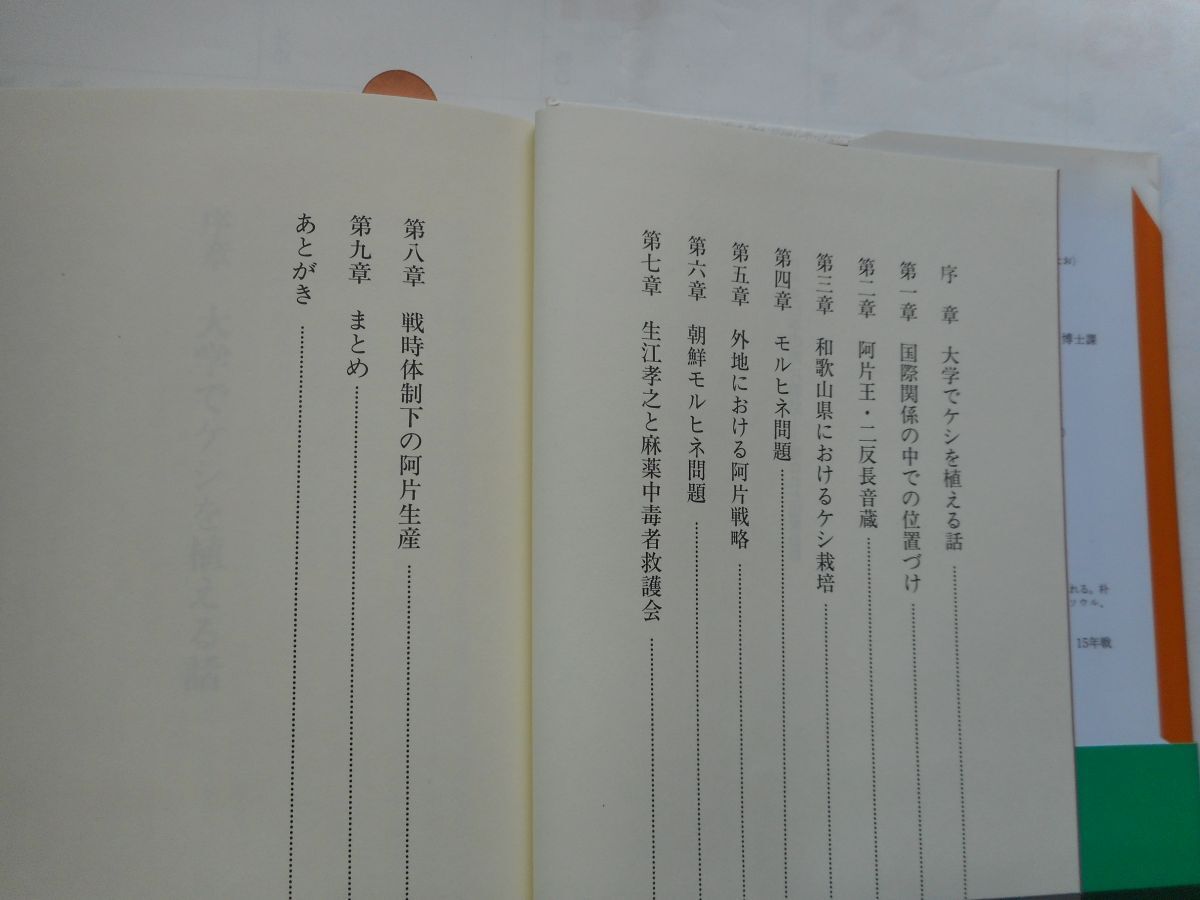 序　章　大学でケシを植える話
第一章　国際関係の中での位置づけ
第二章　阿片王・二反長音蔵
第三章　和歌山県におけるケシ栽培
第四章　モルヒネ問題
第五章　外地における阿片戦略
第六章　朝鮮モルヒネ問題
第七章　生江孝之と麻薬中毒者救護会
第八章　戦時体制下の阿片生産
第九章　まとめ
あとがき
博士課
れる。朴
ソウル、
15年戦